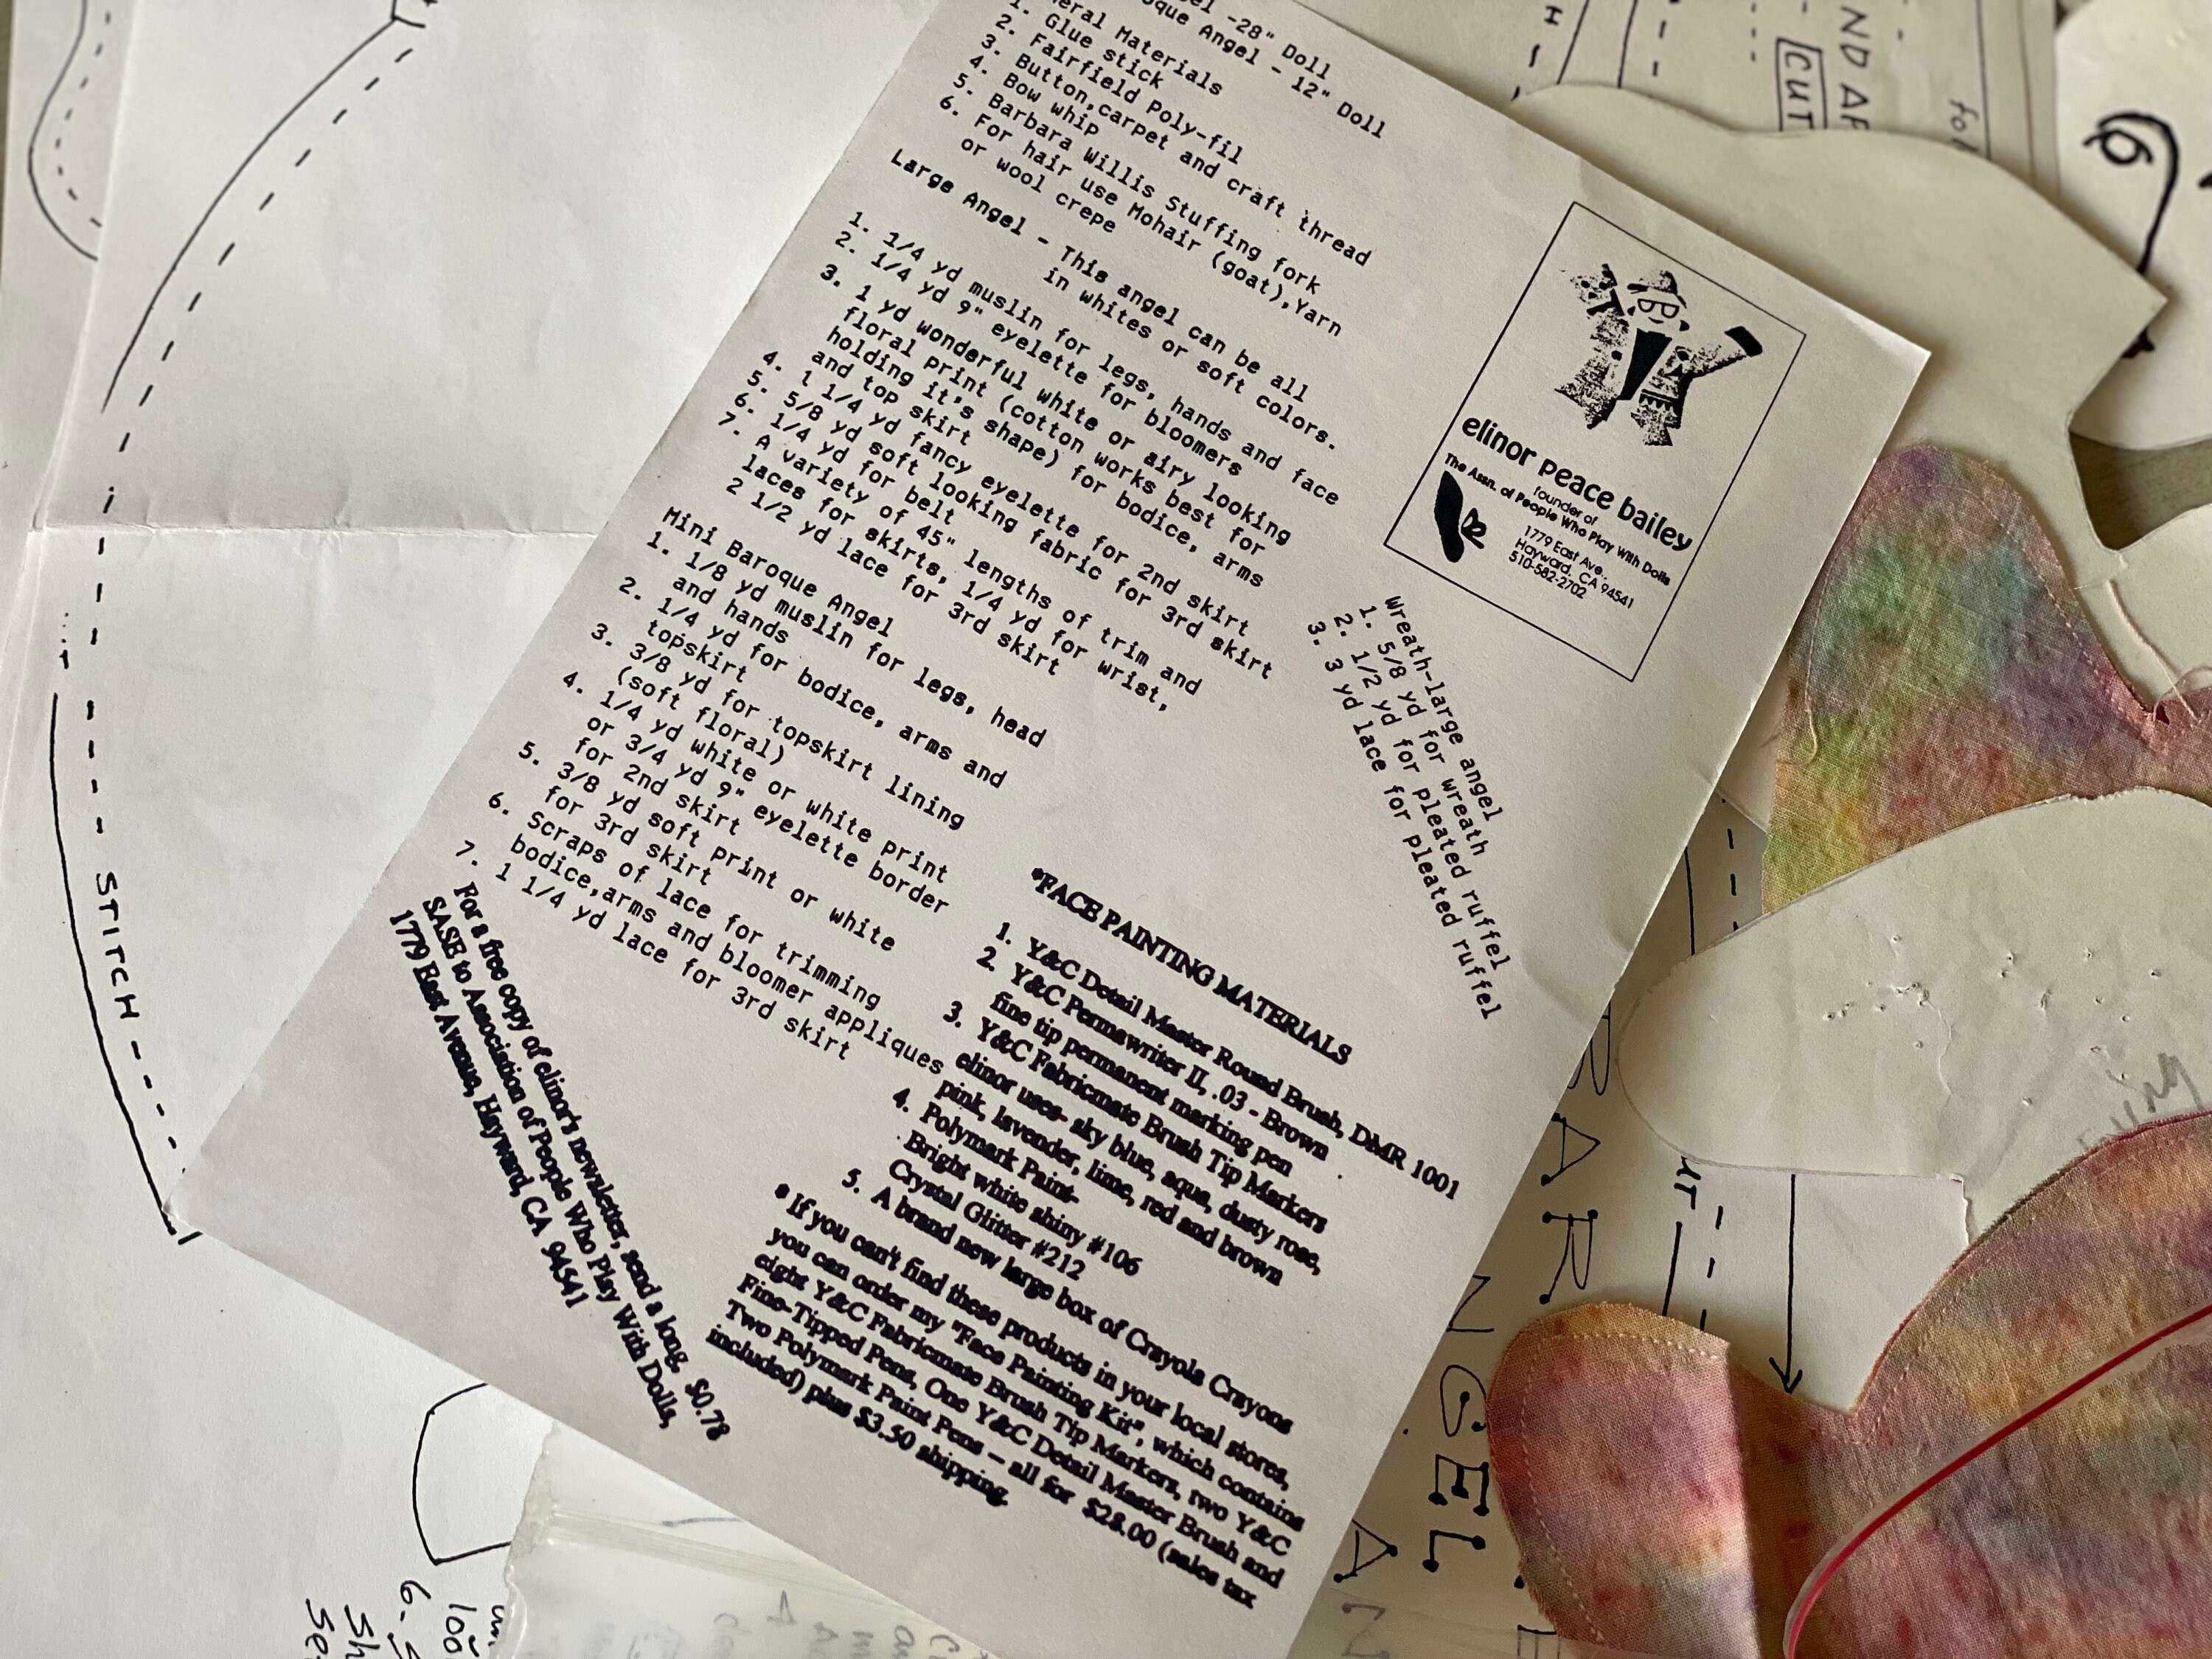 -28" Doll
Angel - 12" Doll
Materials
1. Glue stick
2. Fairfield Poly-fil
3. Button,carpet and craft thread
4. Bow whip
5. Barbara Willis Stuffing fork
6. For hair use Mohair (goat),Yarn
or wool crepe
Large Angel - This angel can be all
in whites or soft colors.
1. 1/4 yd muslin for legs, hands and face
2. 1/4 yd 9" eyelette for bloomers
3. 1 yd wonderful white or airy looking
floral print (cotton works best for
holding it's shape) for bodice, arms
and top skirt
4. 1 1/4 yd fancy eyelette for 2nd skirt
5. 5/8 yd soft looking fabric for 3rd skirt
6. 1/4 yd for belt
7. A variety of 45" lengths of trim and
laces for skirts, 1/4 yd for wrist,
2 1/2 yd lace for 3rd skirt
Mini Baroque Angel
1. 1/8 yd muslin for legs, head
and hands
2. 1/4 yd for bodice, arms and
topskirt
3. 3/8 yd for topskirt lining
(soft floral)
4. 1/4 yd white or white print
or 3/4 yd 9" eyelette border
for 2nd skirt
5. 3/8 yd soft print or white
for 3rd skirt
6. Scraps of lace for trimming
bodice,arms and bloomer appliques
7. 1 1/4 yd lace for 3rd skirt
elinor peace bailey
founder of
The Assn. of People Who Play With Dolls
1779 East Ave.,
Hayward, CA 94541
510-582-2702
Wreath-large angel
1. 5/8 yd for wreath
2. 1/2 yd for pleated ruffel
3. 3 yd lace for pleated ruffel
*FACE PAINTING MATERIALS
1. Y&C Detail Master Round Brush, DMR 1001
2. Y&C Permawriter II, .03 - Brown
fine tip permanent marking pen
3. Y&C Fabricmate Brush Tip Markers
elinor uses- sky blue, aqua, dusty rose,
pink, lavender, lime, red and brown
4. Polymark Paint-
Bright white shiny #106
Crystal Glitter #212
5. A brand new large box of Crayola Crayons
* If you can't find these products in your local stores,
you can order my "Face Painting Kit", which contains
eight Y&C Fabricmate Brush Tip Markers, two Y&C
Fine-Tipped Pens, One Y&C Detail Master Brush and
Two Polymark Paint Pens – all for $28.00 (sales tax
included) plus $3.50 shipping.
For a free copy of elinor's newsletter, send a long, $0.78
SASE to Association of People Who Play With Dolls,
1779 East Avenue, Hayward, CA 94541
STITCH
CUT
6